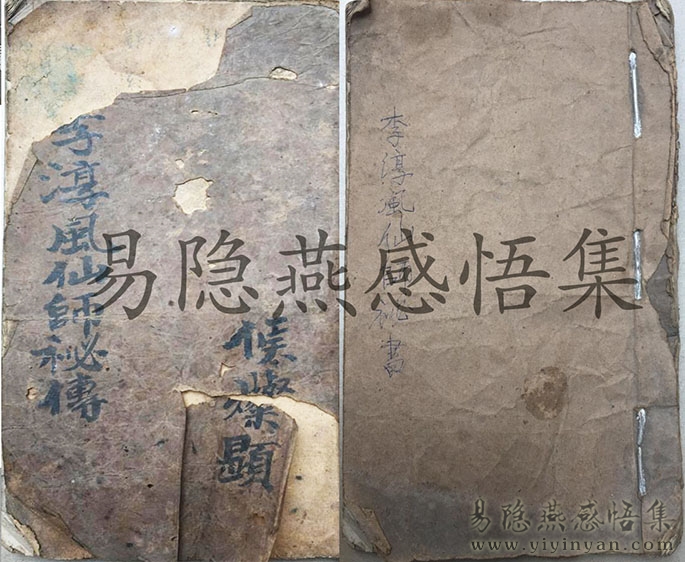 李淳風仙師秘傳
侯燦顕
李淳風仙師秘書
易隐燕感悟集
易隐燕感悟集
www.yiyinyan.com